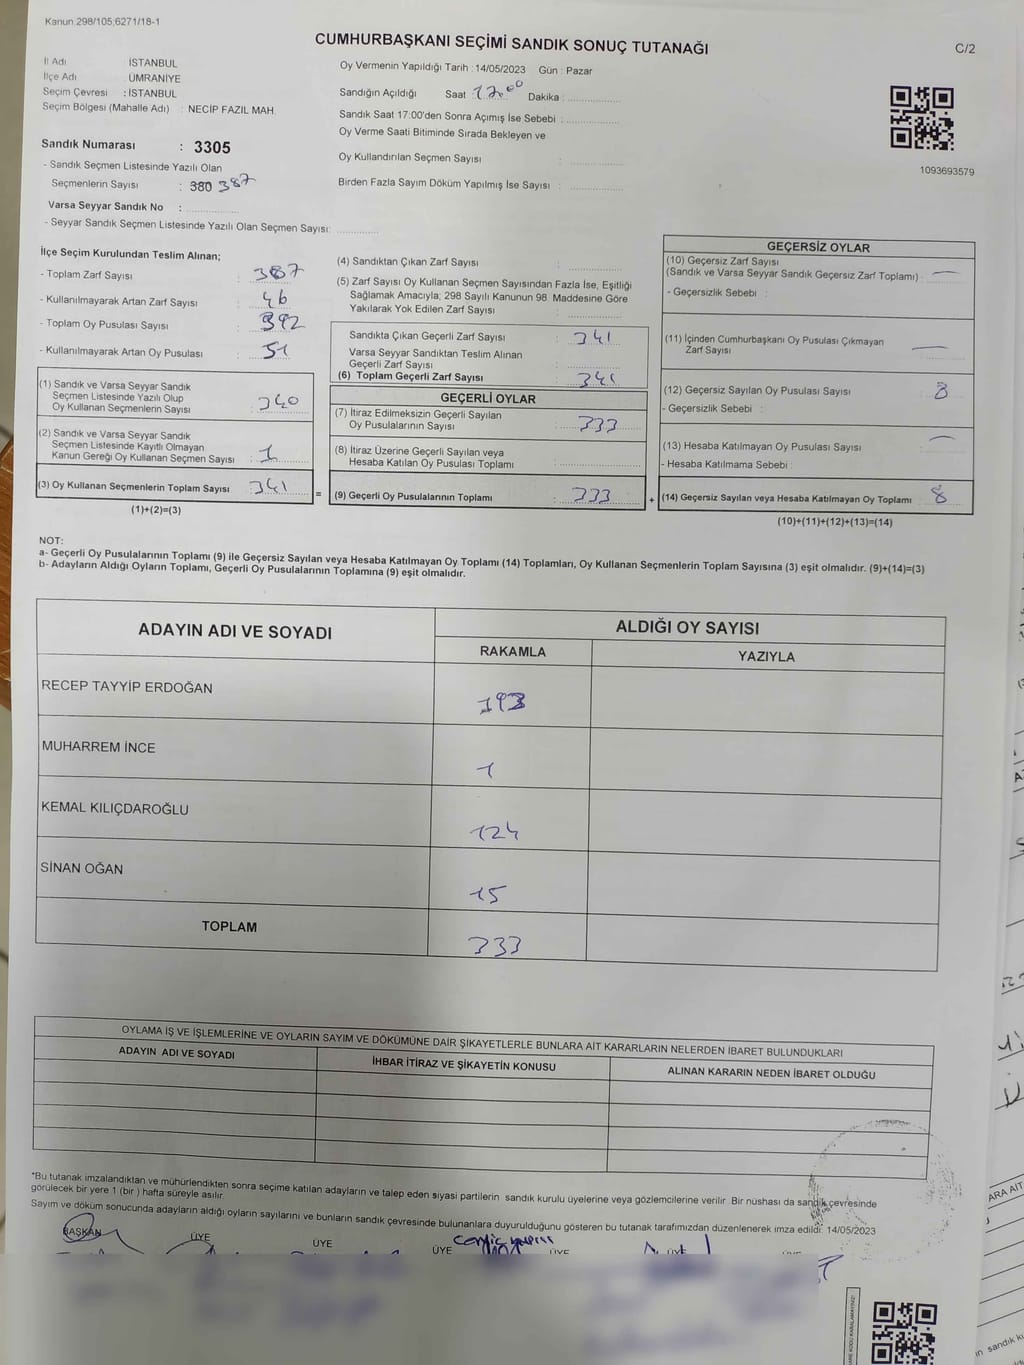 Kanun:298/105,6271/18-1
CUMHURBAŞKANI SEÇİMİ SANDIK SONUÇ TUTANAĞI
C/2
İl Adı İSTANBUL
İlçe Adı ÜMRANİYE
Seçim Çevresi : İSTANBUL
Seçim Bölgesi (Mahalle Adı) : NECİP FAZIL MAH.
Sandık Numarası : 3305
- Sandık Seçmen Listesinde Yazılı Olan
Seçmenlerin Sayısı : 380 387
Varsa Seyyar Sandık No :
- Seyyar Sandık Seçmen Listesinde Yazılı Olan Seçmen Sayısı:
Oy Vermenin Yapıldığı Tarih : 14/05/2023 Gün : Pazar
Sandığın Açıldığı Saat 17.00 Dakika :
Sandık Saat 17:00'den Sonra Açımış İse Sebebi :
Oy Verme Saati Bitiminde Sırada Bekleyen ve
Oy Kullandırılan Seçmen Sayısı :
Birden Fazla Sayım Döküm Yapılmış İse Sayısı :
1093693579
İlçe Seçim Kurulundan Teslim Alınan;
- Toplam Zarf Sayısı : 387
- Kullanılmayarak Artan Zarf Sayısı : 46
- Toplam Oy Pusulası Sayısı : 392
- Kullanılmayarak Artan Oy Pusulası : 51
(1) Sandık ve Varsa Seyyar Sandık
Seçmen Listesinde Yazılı Olup
Oy Kullanan Seçmenlerin Sayısı : 340
(2) Sandık ve Varsa Seyyar Sandık
Seçmen Listesinde Kayıtlı Olmayan
Kanun Gereği Oy Kullanan Seçmen Sayısı : 1
(3) Oy Kullanan Seçmenlerin Toplam Sayısı : 341
(1)+(2)=(3)
=
(4) Sandıktan Çıkan Zarf Sayısı :
(5) Zarf Sayısı Oy Kullanan Seçmen Sayısından Fazla İse, Eşitliği
Sağlamak Amacıyla; 298 Sayılı Kanunun 98. Maddesine Göre
Yakılarak Yok Edilen Zarf Sayısı :
Sandıkta Çıkan Geçerli Zarf Sayısı : 341
Varsa Seyyar Sandıktan Teslim Alınan
Geçerli Zarf Sayısı :
(6) Toplam Geçerli Zarf Sayısı : 341
GEÇERLİ OYLAR
(7) İtiraz Edilmeksizin Geçerli Sayılan
Oy Pusulalarının Sayısı : 333
(8) İtiraz Üzerine Geçerli Sayılan veya
Hesaba Katılan Oy Pusulası Toplamı :
(9) Geçerli Oy Pusulalarının Toplamı : 333
+
GEÇERSİZ OYLAR
(10) Geçersiz Zarf Sayısı
(Sandık ve Varsa Seyyar Sandık Geçersiz Zarf Toplamı) : —
- Geçersizlik Sebebi :
(11) İçinden Cumhurbaşkanı Oy Pusulası Çıkmayan
Zarf Sayısı : —
(12) Geçersiz Sayılan Oy Pusulası Sayısı : 8
- Geçersizlik Sebebi :
(13) Hesaba Katılmayan Oy Pusulası Sayısı : —
- Hesaba Katılmama Sebebi :
(14) Geçersiz Sayılan veya Hesaba Katılmayan Oy Toplamı : 8
(10)+(11)+(12)+(13)=(14)
NOT:
a- Geçerli Oy Pusulalarının Toplamı (9) ile Geçersiz Sayılan veya Hesaba Katılmayan Oy Toplamı (14) Toplamları, Oy Kullanan Seçmenlerin Toplam Sayısına (3) eşit olmalıdır. (9)+(14)=(3)
b- Adayların Aldığı Oyların Toplamı, Geçerli Oy Pusulalarının Toplamına (9) eşit olmalıdır.
ADAYIN ADI VE SOYADI
ALDIĞI OY SAYISI
RAKAMLA YAZIYLA
RECEP TAYYİP ERDOĞAN 193
MUHARREM İNCE 1
KEMAL KILIÇDAROĞLU 124
SİNAN OĞAN 15
TOPLAM 333
OYLAMA İŞ VE İŞLEMLERİNE VE OYLARIN SAYIM VE DÖKÜMÜNE DAİR ŞİKAYETLERLE BUNLARA AİT KARARLARIN NELERDEN İBARET BULUNDUKLARI
ADAYIN ADI VE SOYADI İHBAR İTİRAZ VE ŞİKAYETİN KONUSU ALINAN KARARIN NEDEN İBARET OLDUĞU
*Bu tutanak imzalandıktan ve mühürlendikten sonra seçime katılan adayların ve talep eden siyasi partilerin sandık kurulu üyelerine veya gözlemcilerine verilir. Bir nüshası da sandık çevresinde
görülecek bir yere 1 (bir ) hafta süreyle asılır.
Sayım ve döküm sonucunda adayların aldığı oyların sayılarını ve bunların sandık çevresinde bulunanlara duyurulduğunu gösteren bu tutanak tarafımızdan düzenlenerek imza edildi. 14/05/2023
BAŞKAN ÜYE ÜYE ÜYE ÜYE ÜYE ÜYE